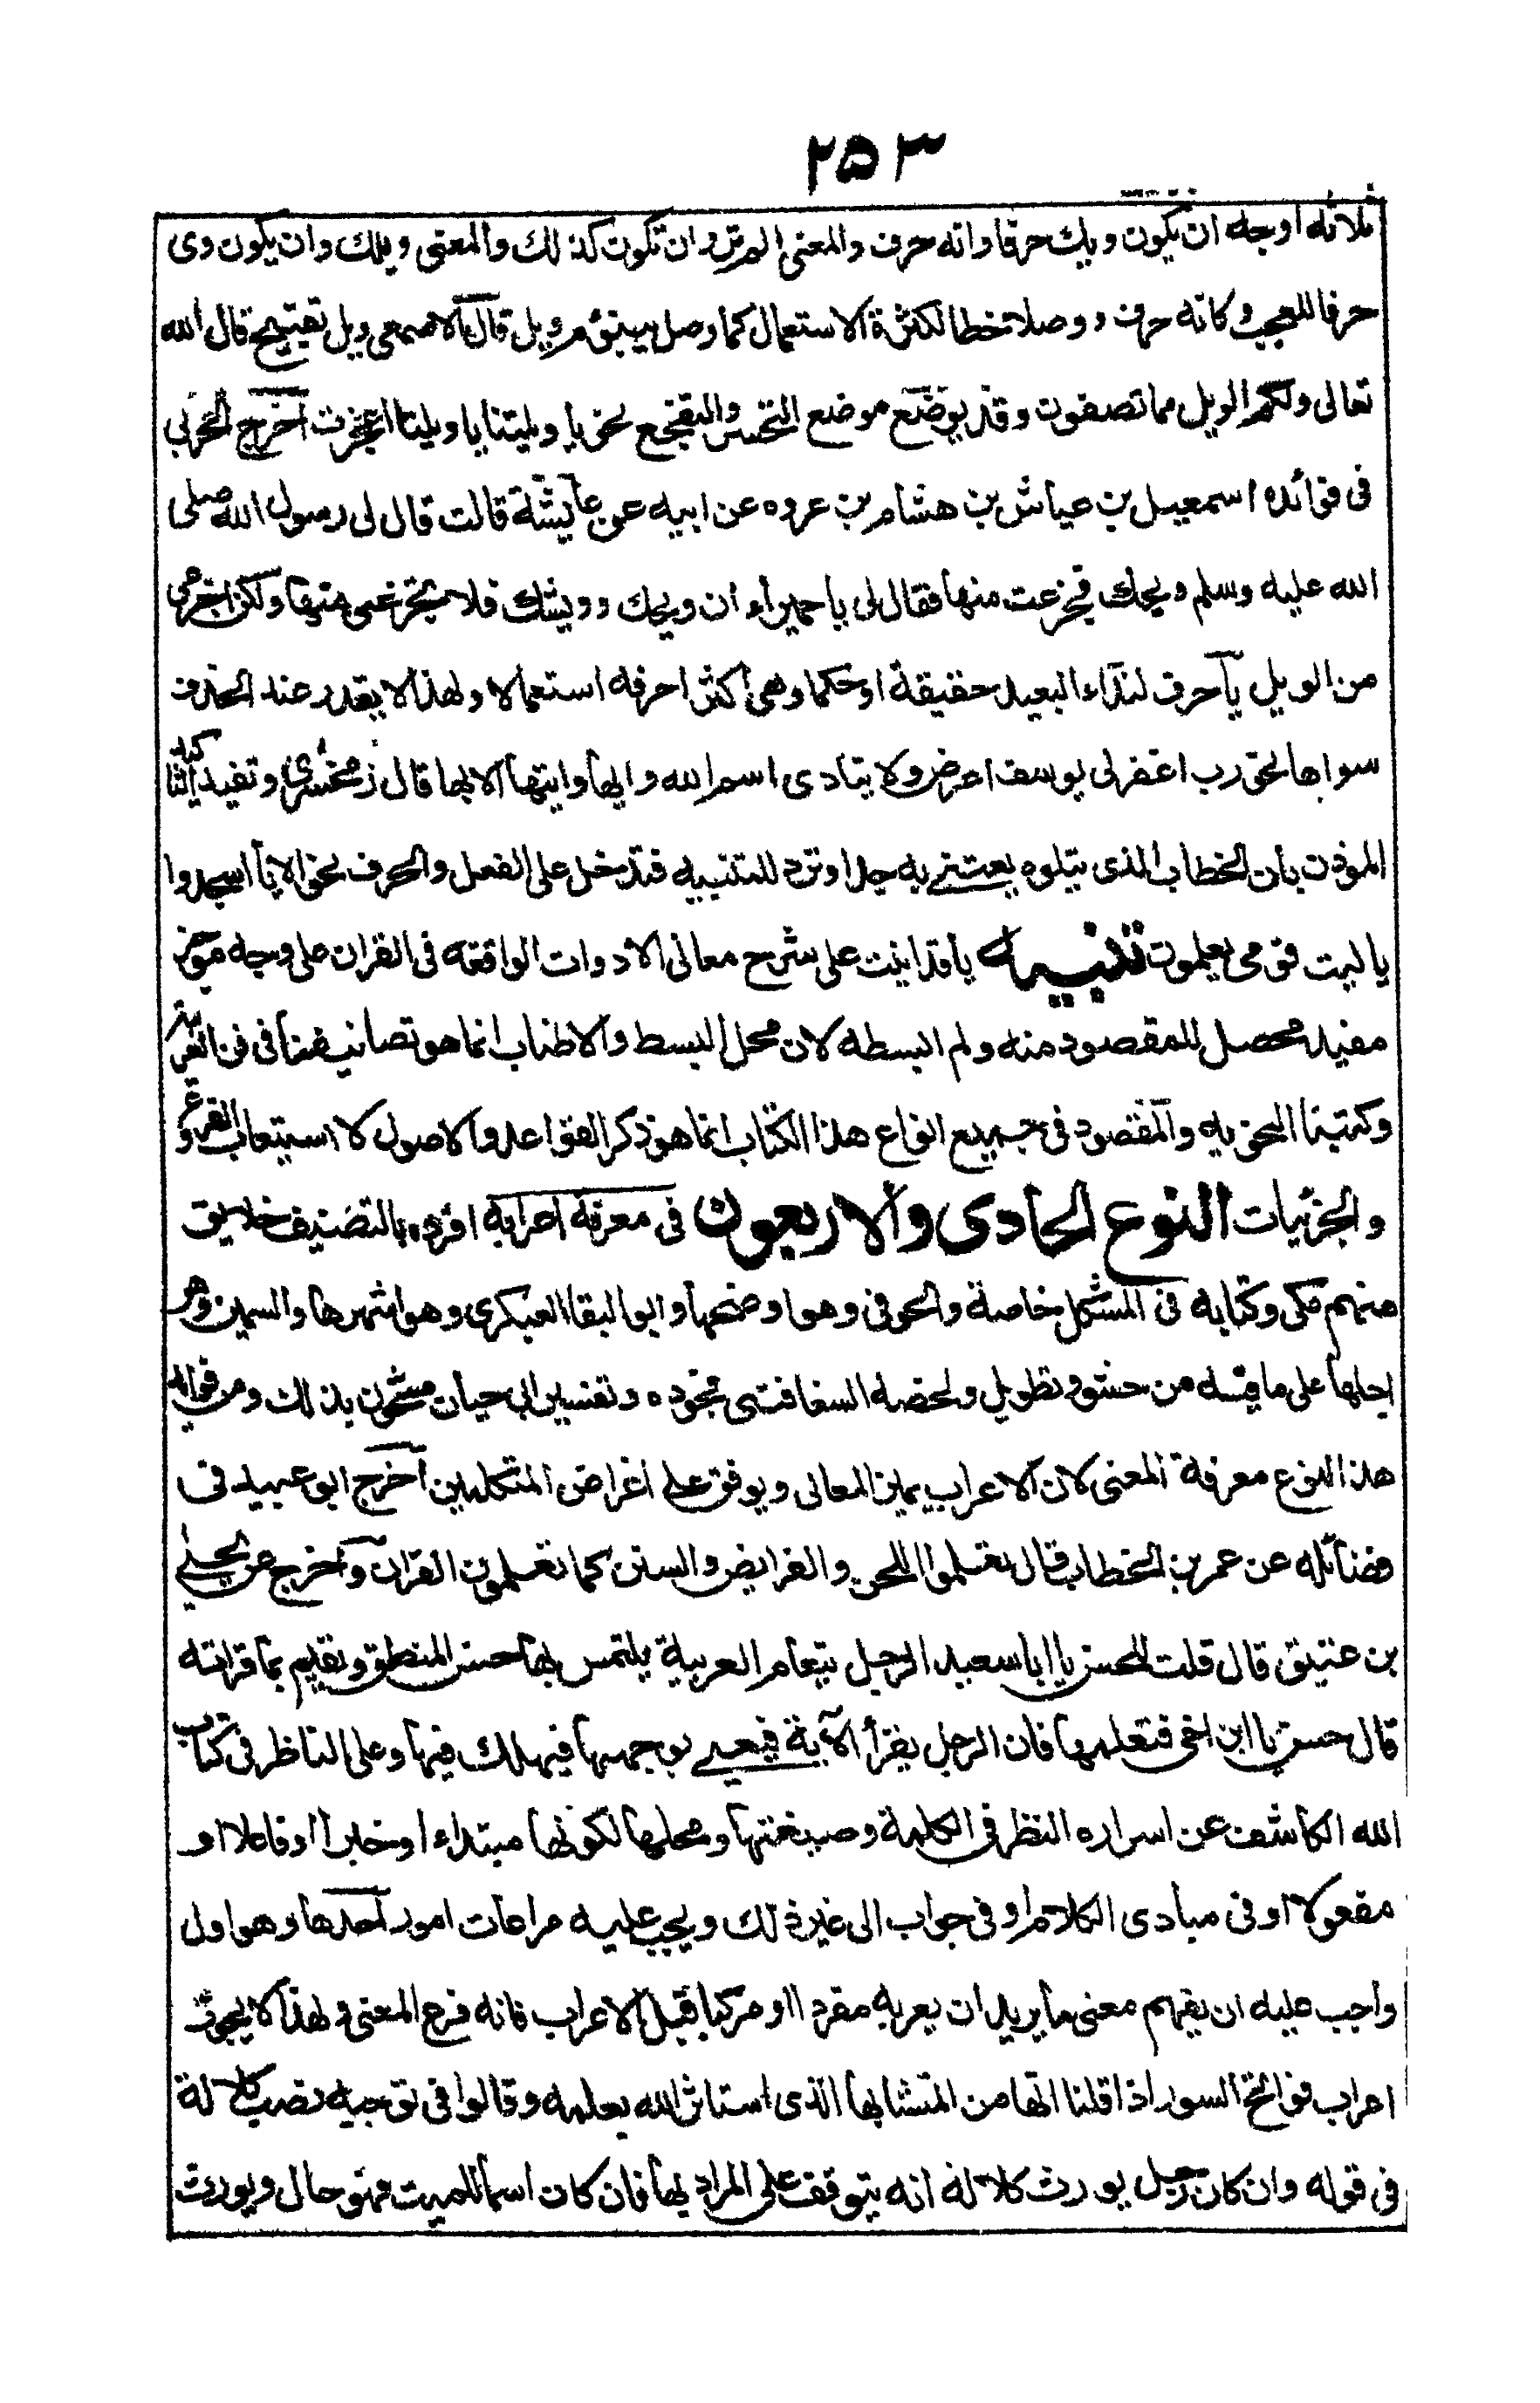 ٢٥٣
ثلاثه اوجه ان يكون ويك حرفا وانه حرف والمعنى الم تر وان تكون كذلك والمعنى ويلك وان يكون وى
حرفا للتعجب وكانه حرف ووصلا خطا لكثرة الاستعمال كما وصل يبنؤم ويل قال الاصمعى ويل تقبيح قال الله
تعالى ولكم الويل مما تصفون وقد يوضع موضع التحسر والتفجع نحو يا ويلتنا يا ويلتا اعجزت اخرج الحربى
فى فوائده اسمعيل بن عياش بن هشام بن عروه عن ابيه عن عايشة قالت قال لى رسول الله صلى
الله عليه وسلم ويحك فجزعت منها فقال لى يا حميراء ان ويحك وويسك فلا تجزعى منها ولكن اجزعى
من الويل يا حرف لنداء البعيد حقيقة او حكما وهى اكثر احرفه استعمالا ولهذا لا يقدر عند الحذف
سواها نحو رب اغفر لى يوسف اعرض ولا ينادى اسم الله وايها وايتها الا بها قال زمخشرى وتفيد التاكيد
الموذن بان الخطاب الذى يتلوه يعتنى به جدا وترد للتنبيه فتدخل على الفعل والحرف نحو الا يا اسجدوا
يا ليت قومى يعلمون تنبيه يا قد اتيت على شرح معانى الادوات الواقعه فى القران على وجه موجز
مفيد محصل للمقصود منه ولم ابسطه لان محل البسط والاطناب انما هو تصانيفنا فى فن العربيه
وكتبنا النحويه والمقصود فى جميع انواع هذا الكتاب انما هو ذكر القواعد والاصول لا استيعاب الفروع
والجزئيات النوع الحادى والاربعون فى معرفة اعرابه افرده بالتصنيف خلايق
منهم مكى وكتابه فى المشكل خاصة والحوفى وهو اوضحها وابو البقا العبكرى وهو اشهرها والسمين وهو
اجلها على ما فيه من حشو وتطويل ولخصه السفاقسى مجوده وتفسير ابى حيان مشحون بذلك ومن فوايد
هذا النوع معرفة المعنى لان الاعراب يميز المعانى ويوقف على اغراض المتكلمين اخرج ابو عبيد فى
فضائله عن عمر بن الخطاب قال تعلموا اللحن والفرايض والسنن كما تعلمون القران واخرج عن يحيى
بن عتيق قال قلت للحسن يا ابا سعيد الرجل يتعلم العربية يلتمس بها حسن المنطق ويقيم بها قراته
قال حسن يا ابن اخى فتعلمها فان الرجل يقرأ الآية فيعيى بوجهها فيهلك فيها وعلى الناظر فى كتاب
الله الكاشف عن اسراره النظر فى الكلمة وصيغتها ومحلها لكونها مبتداء او خبرا او فاعلا او
مفعولا او فى مبادى الكلام او فى جواب الى غير ذلك ويجب عليه مراعات امور احدها وهو اول
واجب عليه ان يفهم معنى ما يريد ان يعربه مفردا او مركبا قبل الاعراب فانه فرع المعنى ولهذا لا يجوز
اعراب فواتح السور اذا قلنا انها من المتشابها الذى استاثر الله بعلمه وقالوا فى توجيه نصب كلالة
فى قوله وان كان رجل يورث كلالة انه يتوقف على المراد بها فان كان اسما للميت فهو حال ويورث